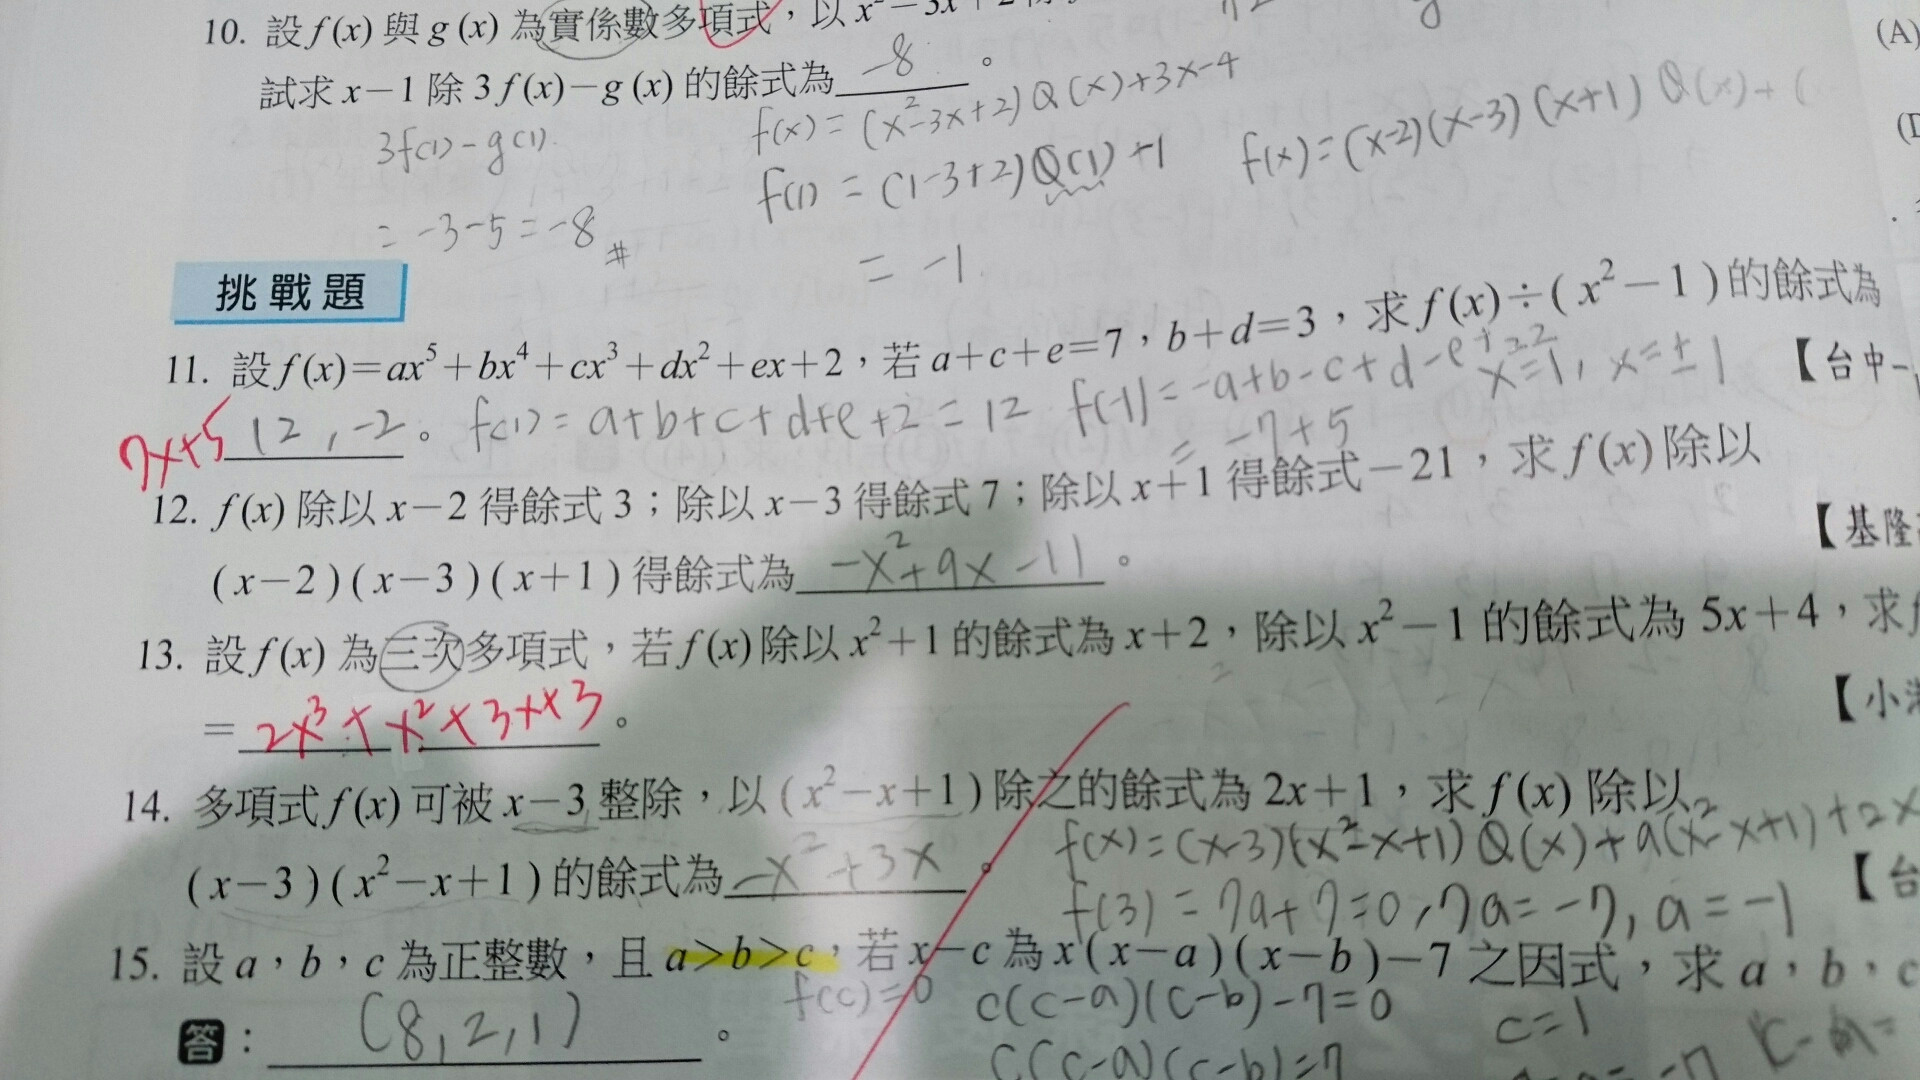 10. 設f(x)與g(x)為實係數多項式，以x²−3x+2
試求x−1除3f(x)−g(x)的餘式為 -8 。
3f(1)-g(1)
= -3-5=-8 #
f(x)=(x²-3x+2)Q(x)+3x-4
f(1)=(1-3+2)Q(1)+1
= -1
f(x)=(x-2)(x-3)(x+1)Q(x)+(
(A)
挑戰題
11. 設f(x)=ax⁵+bx⁴+cx³+dx²+ex+2，若a+c+e=7，b+d=3，求f(x)÷(x²−1)的餘式為
7x+5 12,-2 。 f(1)=a+b+c+d+e+2=12 f(-1)=-a+b-c+d-e+2
= -7+5
x²=1, x=±1
【台中一
12. f(x)除以x−2得餘式3；除以x−3得餘式7；除以x+1得餘式−21，求f(x)除以
(x−2)(x−3)(x+1)得餘式為 -x²+9x-11 。
【基隆
13. 設f(x)為三次多項式，若f(x)除以x²+1的餘式為x+2，除以x²−1的餘式為5x+4，求f
= 2x³+x²+3x+3 。
【小
14. 多項式f(x)可被x−3整除，以(x²−x+1)除之的餘式為2x+1，求f(x)除以
(x−3)(x²−x+1)的餘式為 -x²+3x 。
f(x)=(x-3)(x²-x+1)Q(x)+a(x²-x+1)+2x
f(3)=7a+7=0, 7a=-7, a=-1
【台
15. 設a，b，c為正整數，且a>b>c，若x−c為x(x−a)(x−b)−7之因式，求a，b，c
答： (8,2,1) 。
f(c)=0 c(c-a)(c-b)-7=0
c(c-a)(c-b)=7
c=1